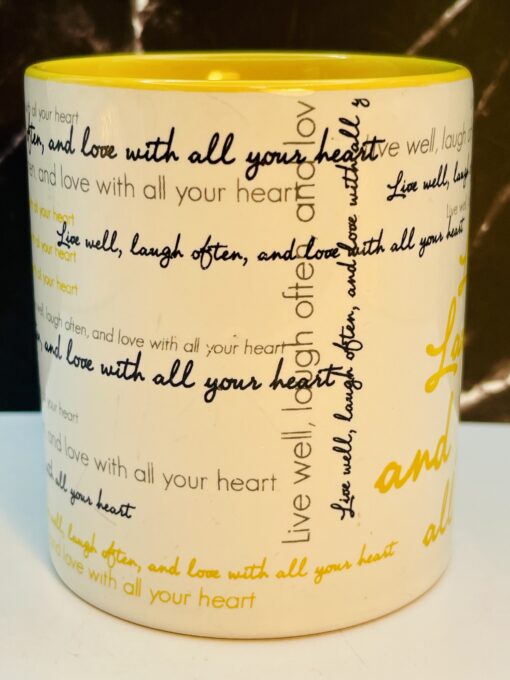 all your heart
often, and love with all your heart
and love with all your heart
Live well, laugh
Live well,
all your heart
Live well, laugh often, and love with all your heart
all your heart
all your heart
well, laugh often, and love with all your heart
and love with all your heart
your heart
and love with all your heart
all your heart
well, laugh often, and love with all your heart
love with all your heart
Live well, laugh often and lov
Live well, laugh often, and love with all y
and
all